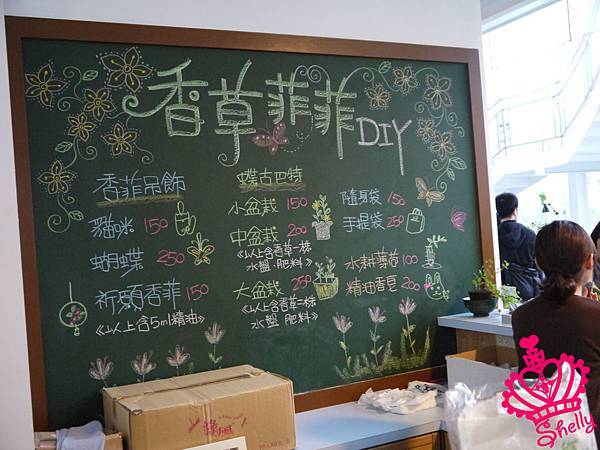 香草菲菲 DIY
香菲吊飾
貓咪 150
蝴蝶 250
祈願香菲 150
《以上含5ml精油》
蝶古巴特
小盆栽 150
中盆栽 200
《以上含香草一株
水盤·肥料》
大盆栽 250
《以上含香草二株
水盤 肥料》
隨身袋 150
手提袋 250
水耕薄荷 100
精油香豆 200
Shelly
Shelly